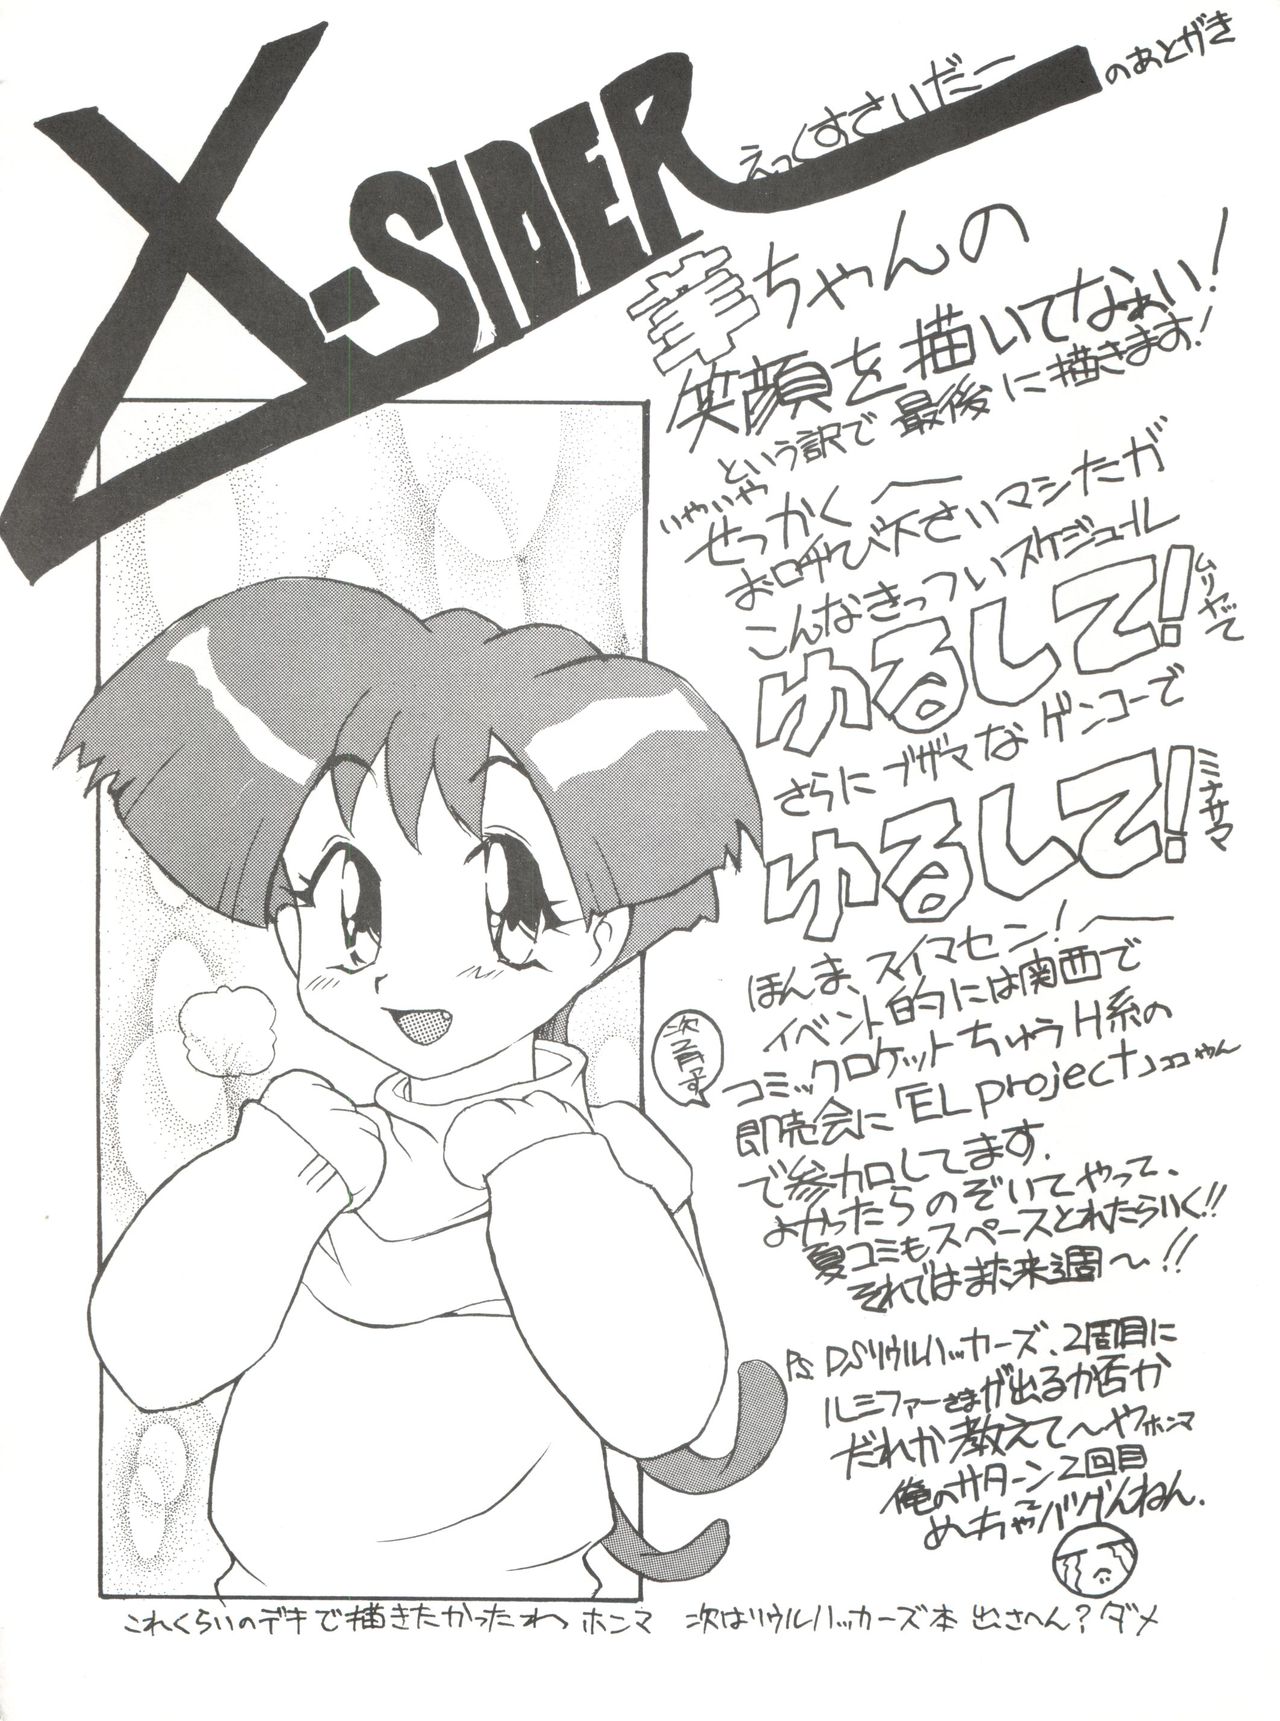 X-SIDER
えっくすさいだーのあとがき
華ちゃんの
笑顔を描いてなぁい!
という訳で最後に描きます!
いやいや
せっかく
お呼び下さいマシたが
こんなきっついスケジュール
ムリヤて
ゆるして!
さらにブザマなゲンコーで
ゆるして!
ミナサマ
ほんま、スイマセン!
イベント的には関西で
コミックロケットちゅうH系の
即売会に「EL project」ココやん
で参加してます.
よかったらのぞいてやって、
夏コミもスペースとれたらいく!!
それではまた来週〜!!
PS. DSソウルハッカーズ、2周目に
ルシファーさまが出るか否か
だれか教えて〜やホンマ
俺のサターン2回目
めーちゃバグんねん.
これくらいのデキで描きたかったわっ ホンマ
次はソウルハッカーズ本 出さへん? ダメ